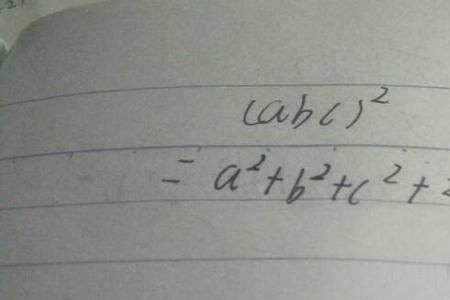 (abc)²
= a²+b²+c²+